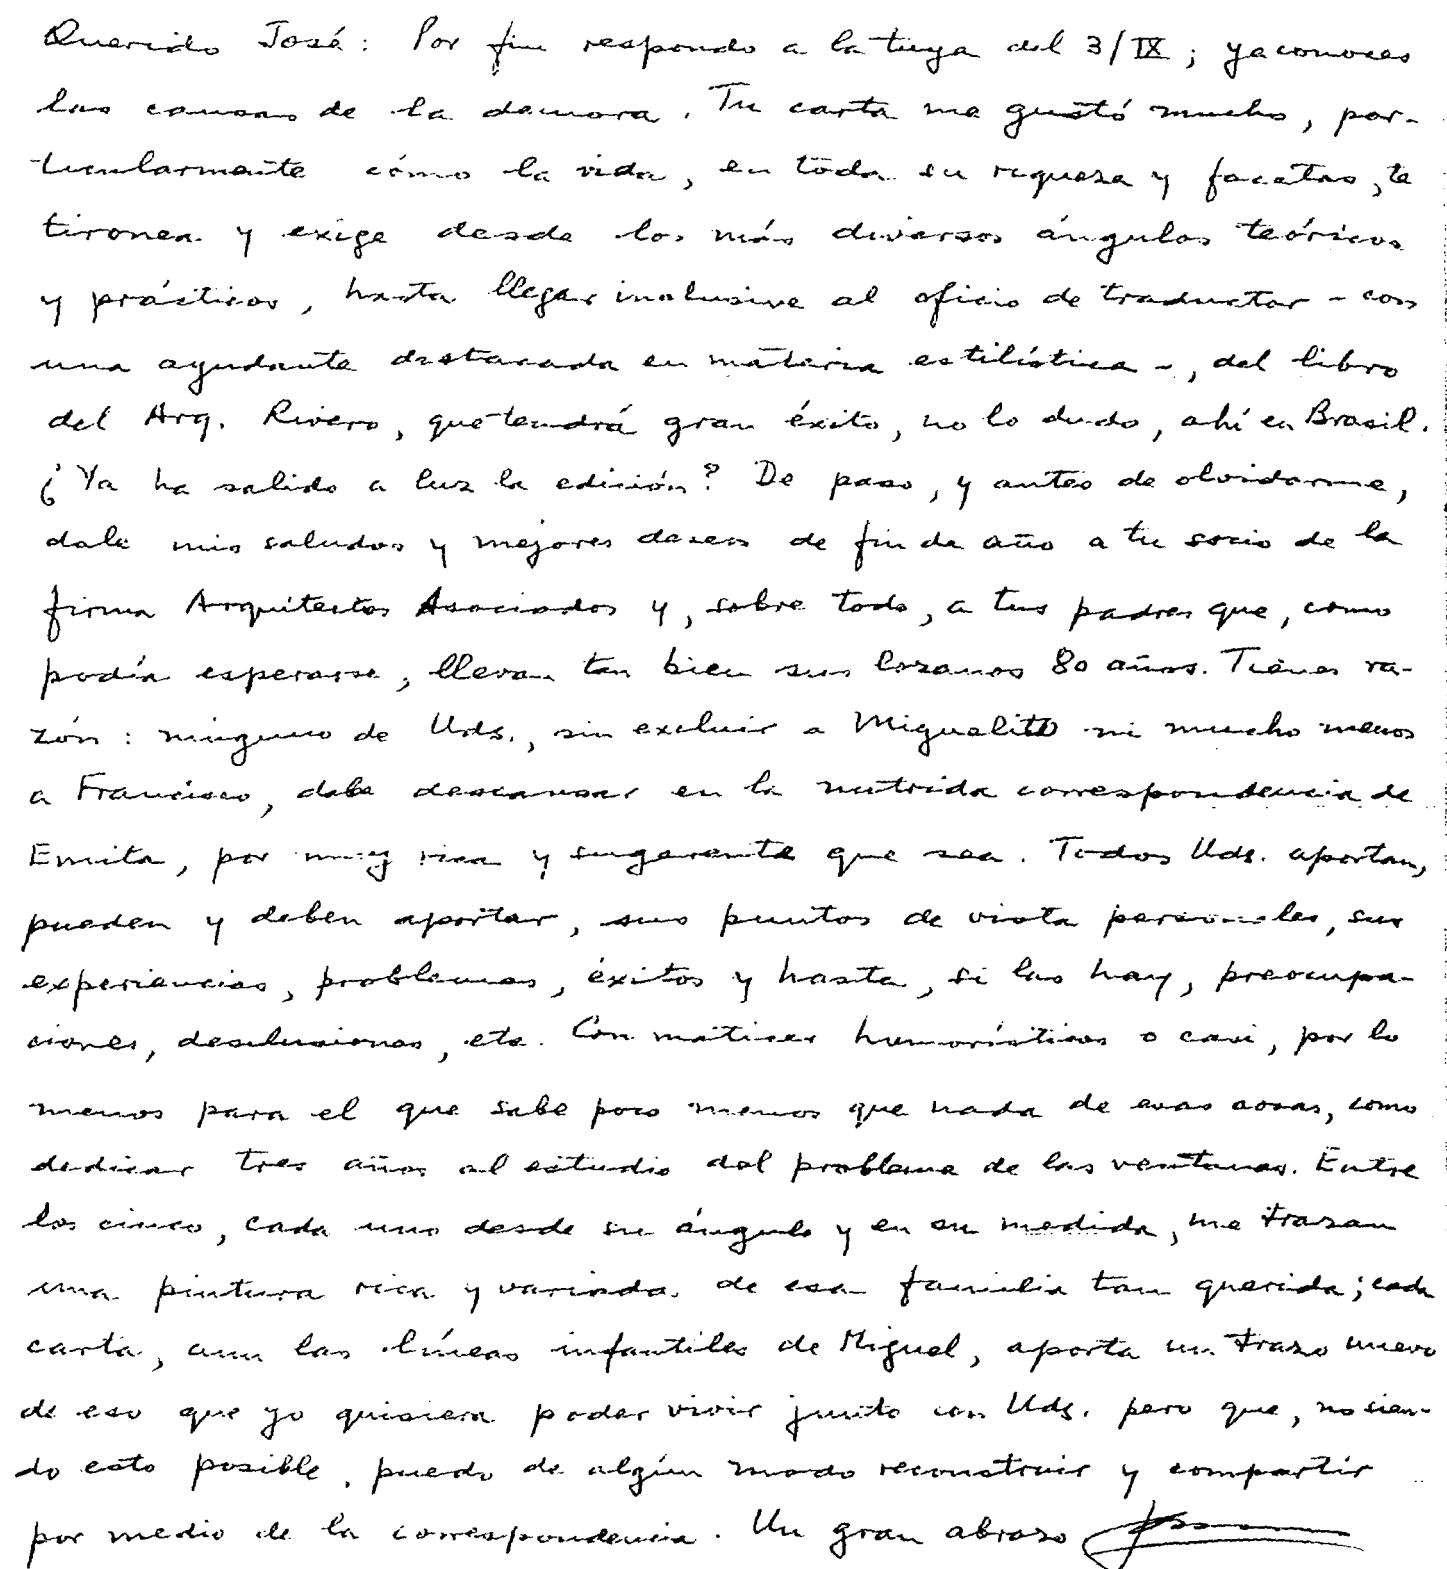 Querido José: Por fin respondo a la tuya del 3/IX; ya conoces
las causas de la demora. Tu carta me gustó mucho, par-
ticularmente cómo la vida, en toda su riqueza y facetas, te
tironea y exige desde los más diversos ángulos teóricos
y prácticos, hasta llegar inclusive al oficio de traductor - con
una ayudante destacada en materia estilística -, del libro
del Arq. Rivero, que tendrá gran éxito, no lo dudo, ahí en Brasil.
¿Ya ha salido a luz la edición? De paso, y antes de olvidarme,
dale mis saludos y mejores deseos de fin de año a tu socio de la
firma Arquitectos Asociados y, sobre todo, a tus padres que, como
podía esperarse, llevan tan bien sus lozanos 80 años. Tienes ra-
zón: ninguno de Uds., sin excluir a Miguelito ni mucho menos
a Francisco, debe descansar en la nutrida correspondencia de
Emita, por muy rica y sugerente que sea. Todos Uds. aportan,
pueden y deben aportar, sus puntos de vista personales, sus
experiencias, problemas, éxitos y hasta, si las hay, preocupa-
ciones, desilusiones, etc. Con matices humorísticos o casi, por lo
menos para el que sabe poco menos que nada de esas cosas, como
dedicar tres años al estudio del problema de las ventanas. Entre
los cinco, cada uno desde su ángulo y en su medida, me trazan
una pintura rica y variada de esa familia tan querida; cada
carta, aun las líneas infantiles de Miguel, aporta un trazo nuevo
de eso que yo quisiera poder vivir junto con Uds. pero que, no sien-
do esto posible, puedo de algún modo reconstruir y compartir
por medio de la correspondencia. Un gran abrazo